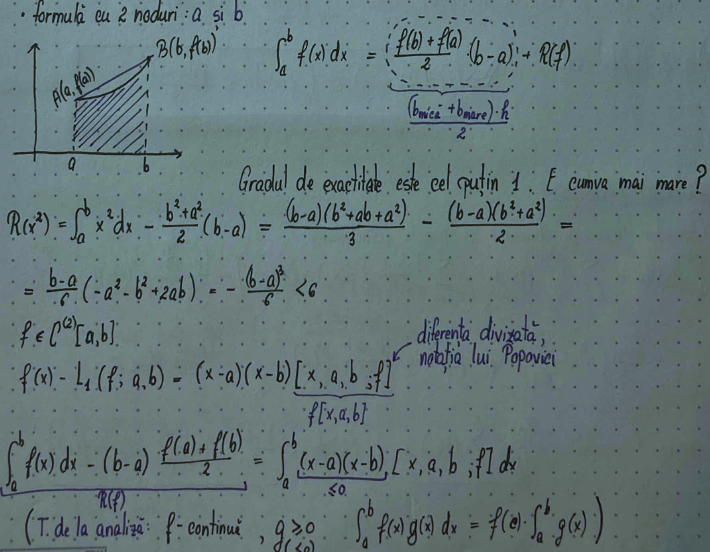 • formulă cu 2 noduri : a și b
B(b, f(b))
A(a, f(a))
a b
∫_a^b f(x) dx = (f(b) + f(a))/2 · (b-a) + R(f)
((b_mică + b_mare) · h)/2
Gradul de exactitate este cel puțin 1. E cumva mai mare ?
R(x²) = ∫_a^b x² dx - (b² + a²)/2 (b-a) = ((b-a)(b² + ab + a²))/3 - ((b-a)(b² + a²))/2 =
= (b-a)/6 (-a² - b² + 2ab) = - (b-a)³/6 < 6
f ∈ C⁽²⁾[a,b]
diferența divizată,
notația lui Popovici
f(x) - L₁(f; a,b) = (x-a)(x-b) [x, a, b ; f]
f[x,a,b]
∫_a^b f(x) dx - (b-a) (f(a) + f(b))/2 = ∫_a^b (x-a)(x-b) [x, a, b ; f] dx
R(f) ≤0
(T. de la analiză: f - continuă, g ≥ 0 ∫_a^b f(x) g(x) dx = f(c) · ∫_a^b g(x) )
(≤0)